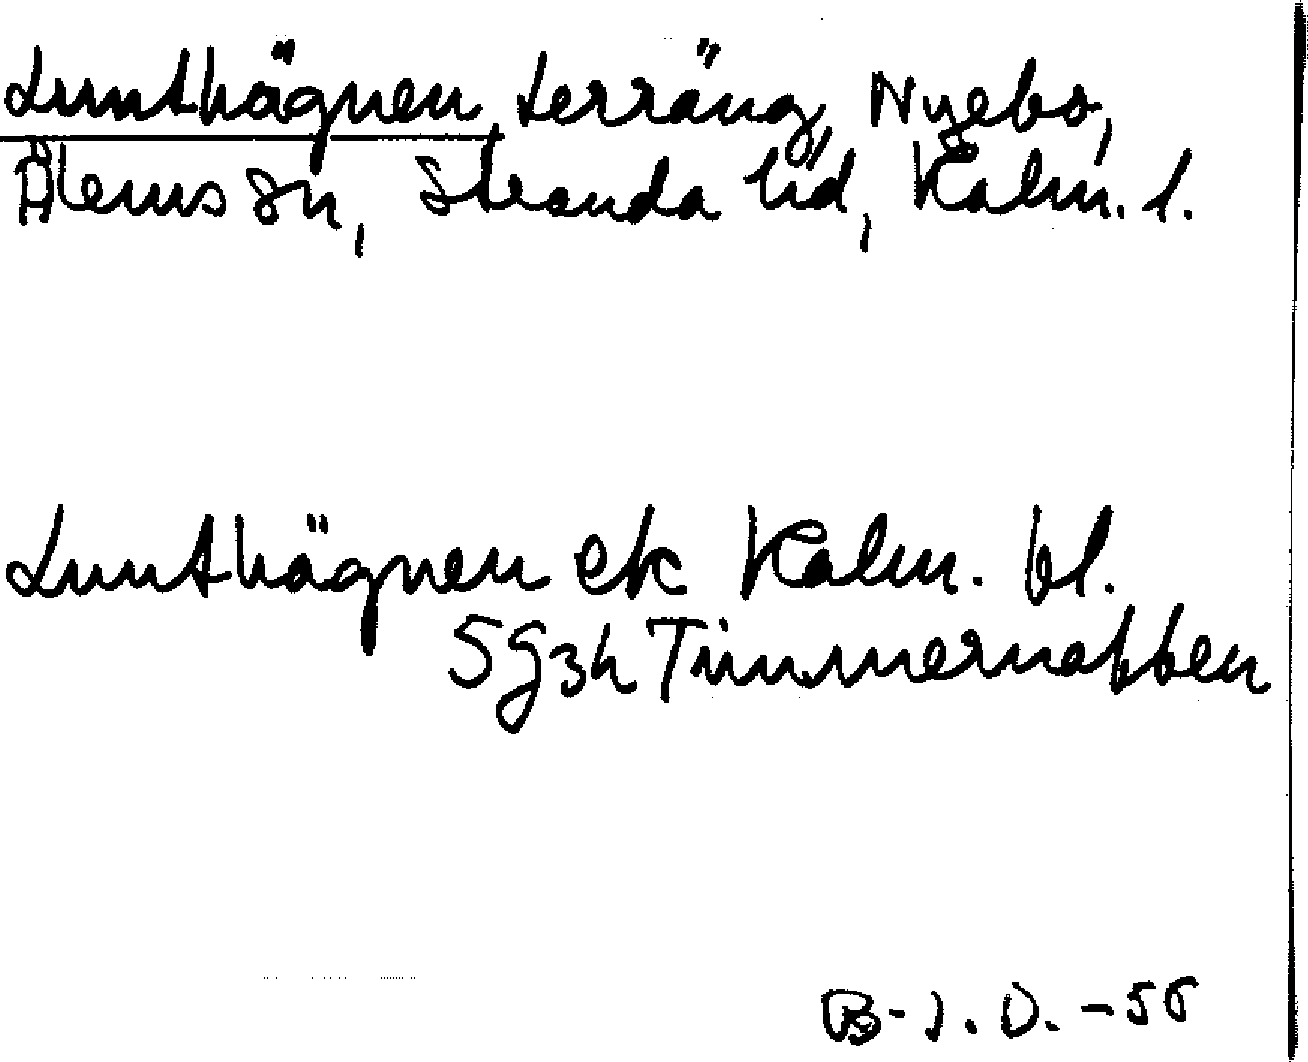 Lunthägnen, terräng, Nyebo,
Ålems sn, Stranda hd, Kalm. l.
Lunthägnen ek Kalm. bl.
5g3h Timmernabben
B-J.O. -56